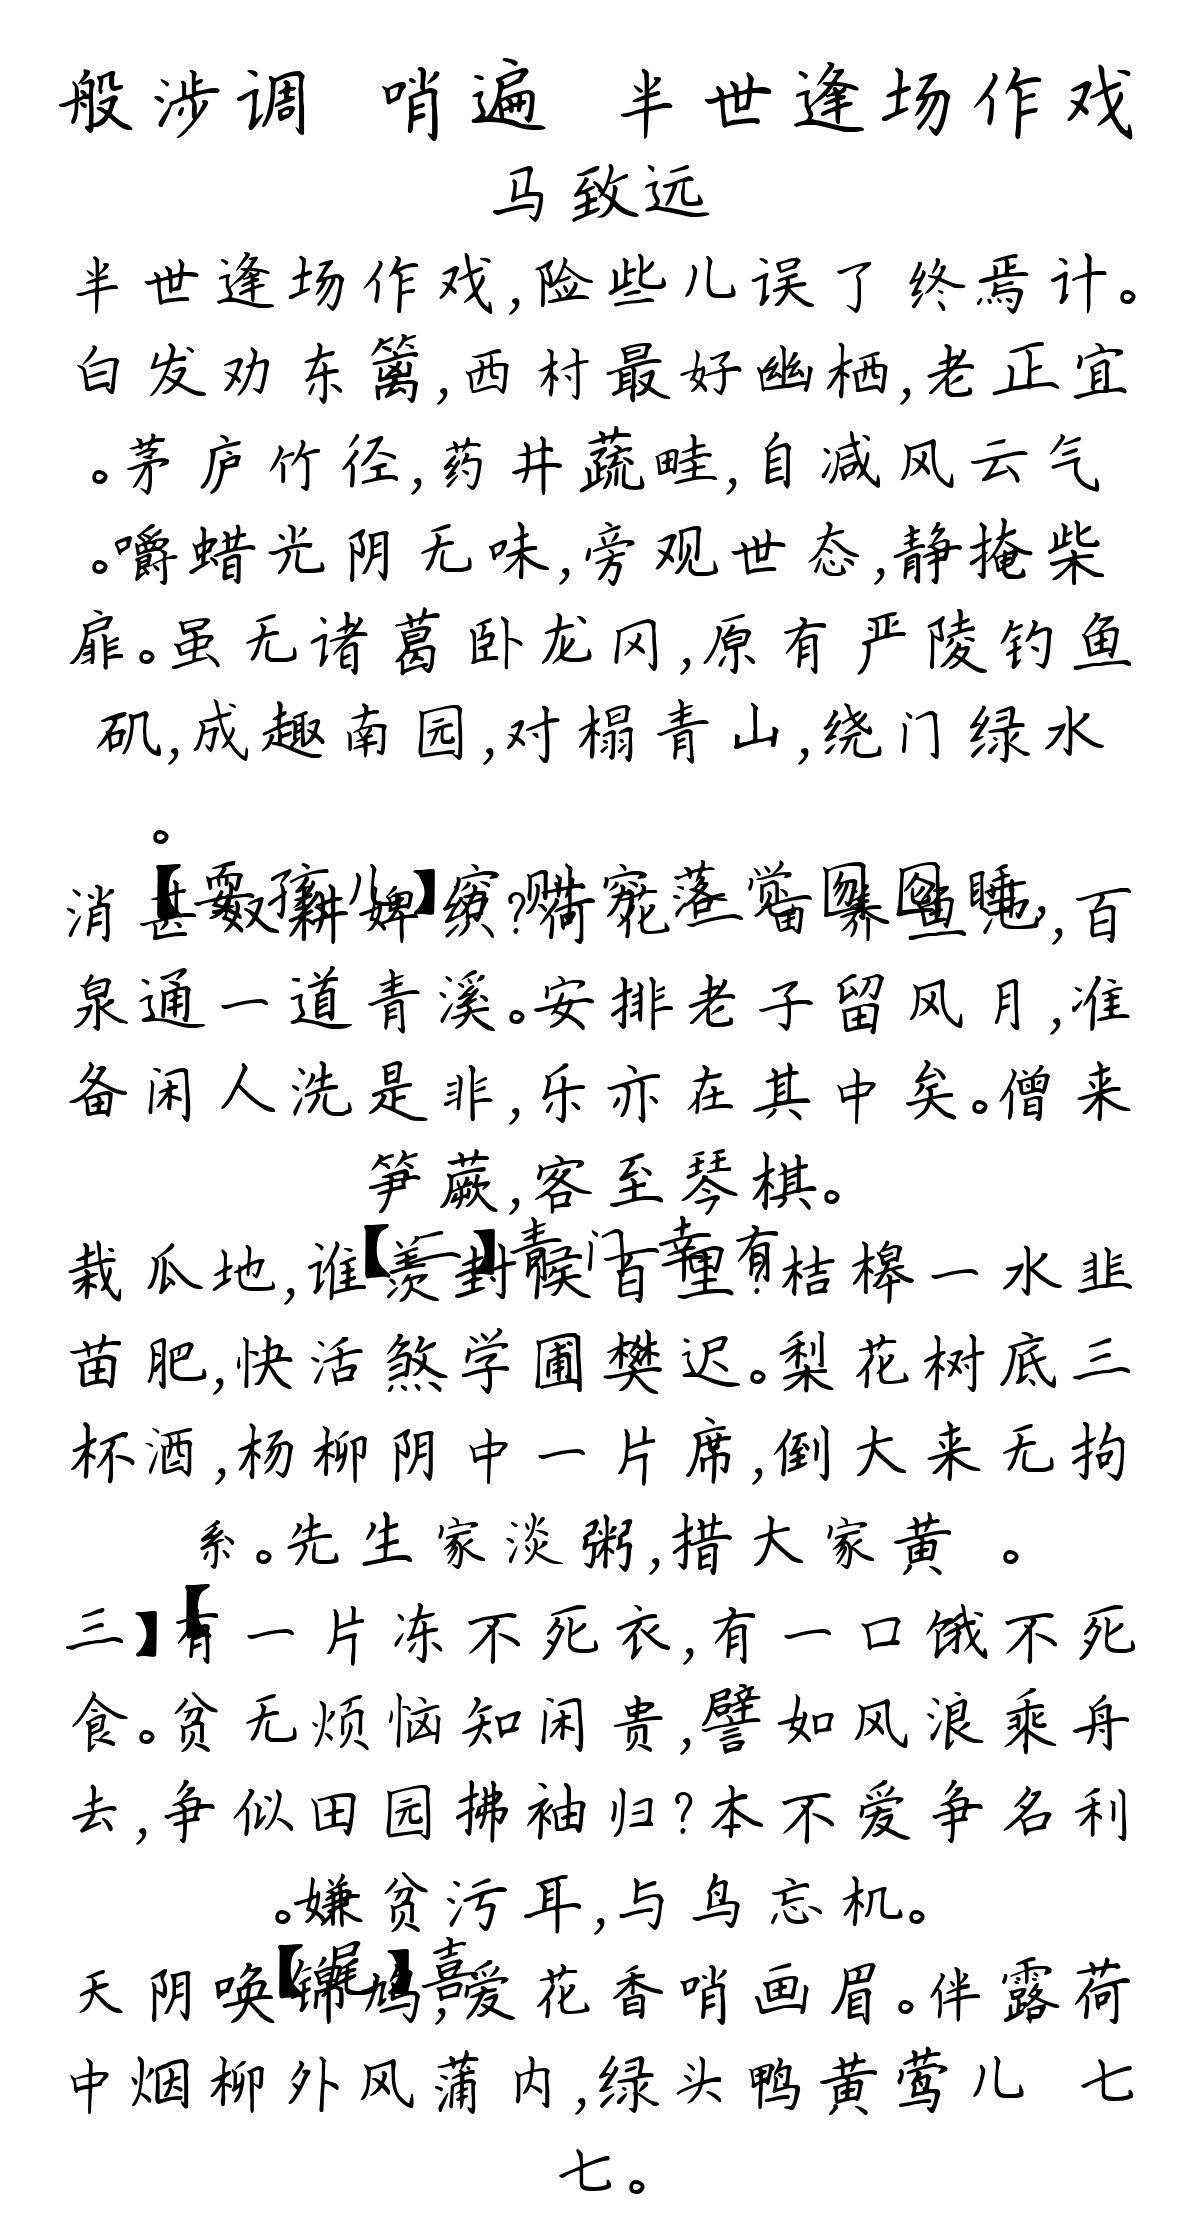 般涉调 哨遍 半世逢场作戏
马致远
半世逢场作戏,险些儿误了终焉计。
白发劝东篱,西村最好幽栖,老正宜
。茅庐竹径,药井蔬畦,自减风云气
。嚼蜡光阴无味,旁观世态,静掩柴
扉。虽无诸葛卧龙冈,原有严陵钓鱼
矶,成趣南园,对榻青山,绕门绿水
。
【耍孩儿】穷则穷落觉囫囵睡,
消甚奴耕婢织?荷花二亩养鱼池,百
泉通一道青溪。安排老子留风月,准
备闲人洗是非,乐亦在其中矣。僧来
笋蕨,客至琴棋。
【二】青门幸有
栽瓜地,谁羡封候百里?桔槔一水韭
苗肥,快活煞学圃樊迟。梨花树底三
杯酒,杨柳阴中一片席,倒大来无拘
系。先生家淡粥,措大家黄 。
【
三】有一片冻不死衣,有一口饿不死
食。贫无烦恼知闲贵,譬如风浪乘舟
去,争似田园拂袖归?本不爱争名利
。嫌贫污耳,与鸟忘机。
【尾】喜
天阴唤锦鸠,爱花香哨画眉。伴露荷
中烟柳外风蒲内,绿头鸭黄莺儿 七
七。